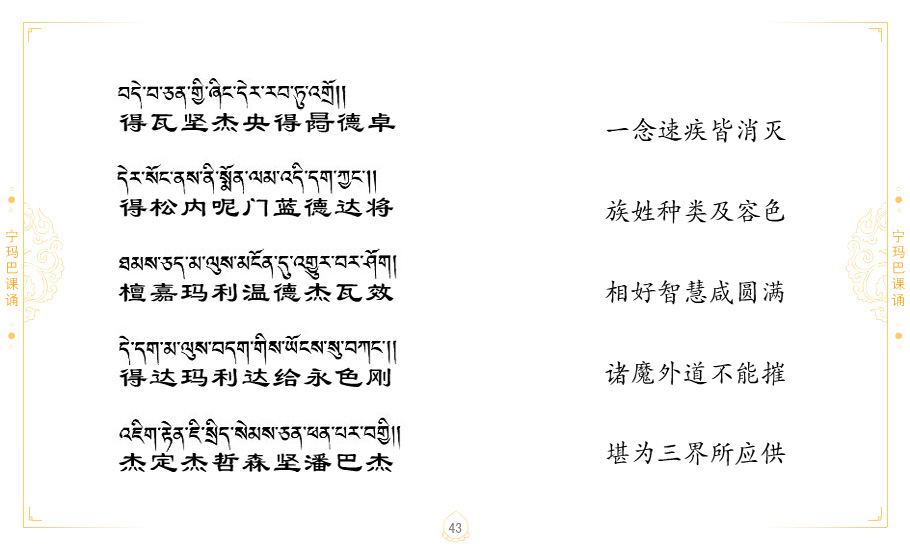 བདེ་བ་ཅན་གྱི་ཞིང་དེར་རབ་ཏུ་འགྲོ།།
得瓦坚杰央得冔德卓
དེར་སོང་ནས་ནི་སྨོན་ལམ་འདི་དག་ཀྱང་།།
得松内呢门蓝德达将
ཐམས་ཅད་མ་ལུས་མངོན་དུ་འགྱུར་བར་ཤོག།
檀嘉玛利温德杰瓦效
དེ་དག་མ་ལུས་བདག་གིས་ཡོངས་སུ་བཀང་།།
得达玛利达给永色刚
འཇིག་རྟེན་ཇི་སྲིད་སེམས་ཅན་ཕན་པར་བགྱི།།
杰定杰哲森坚潘巴杰
一念速疾皆消灭
族姓种类及容色
相好智慧咸圆满
诸魔外道不能摧
堪为三界所应供
宁玛巴课诵
宁玛巴课诵
43